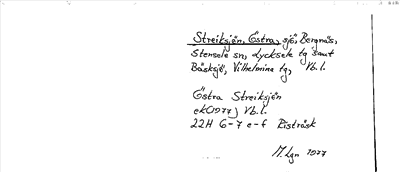 Streiksjön, Östra, sjö, Bergnäs,
Stensele sn, Lycksele tg samt
Bäsksjö, Vilhelmina tg, Vb.l.
Östra Streiksjön
ek(1977) Vb.l.
22H 6-7 e-f Risträsk
M. Lgn 1977